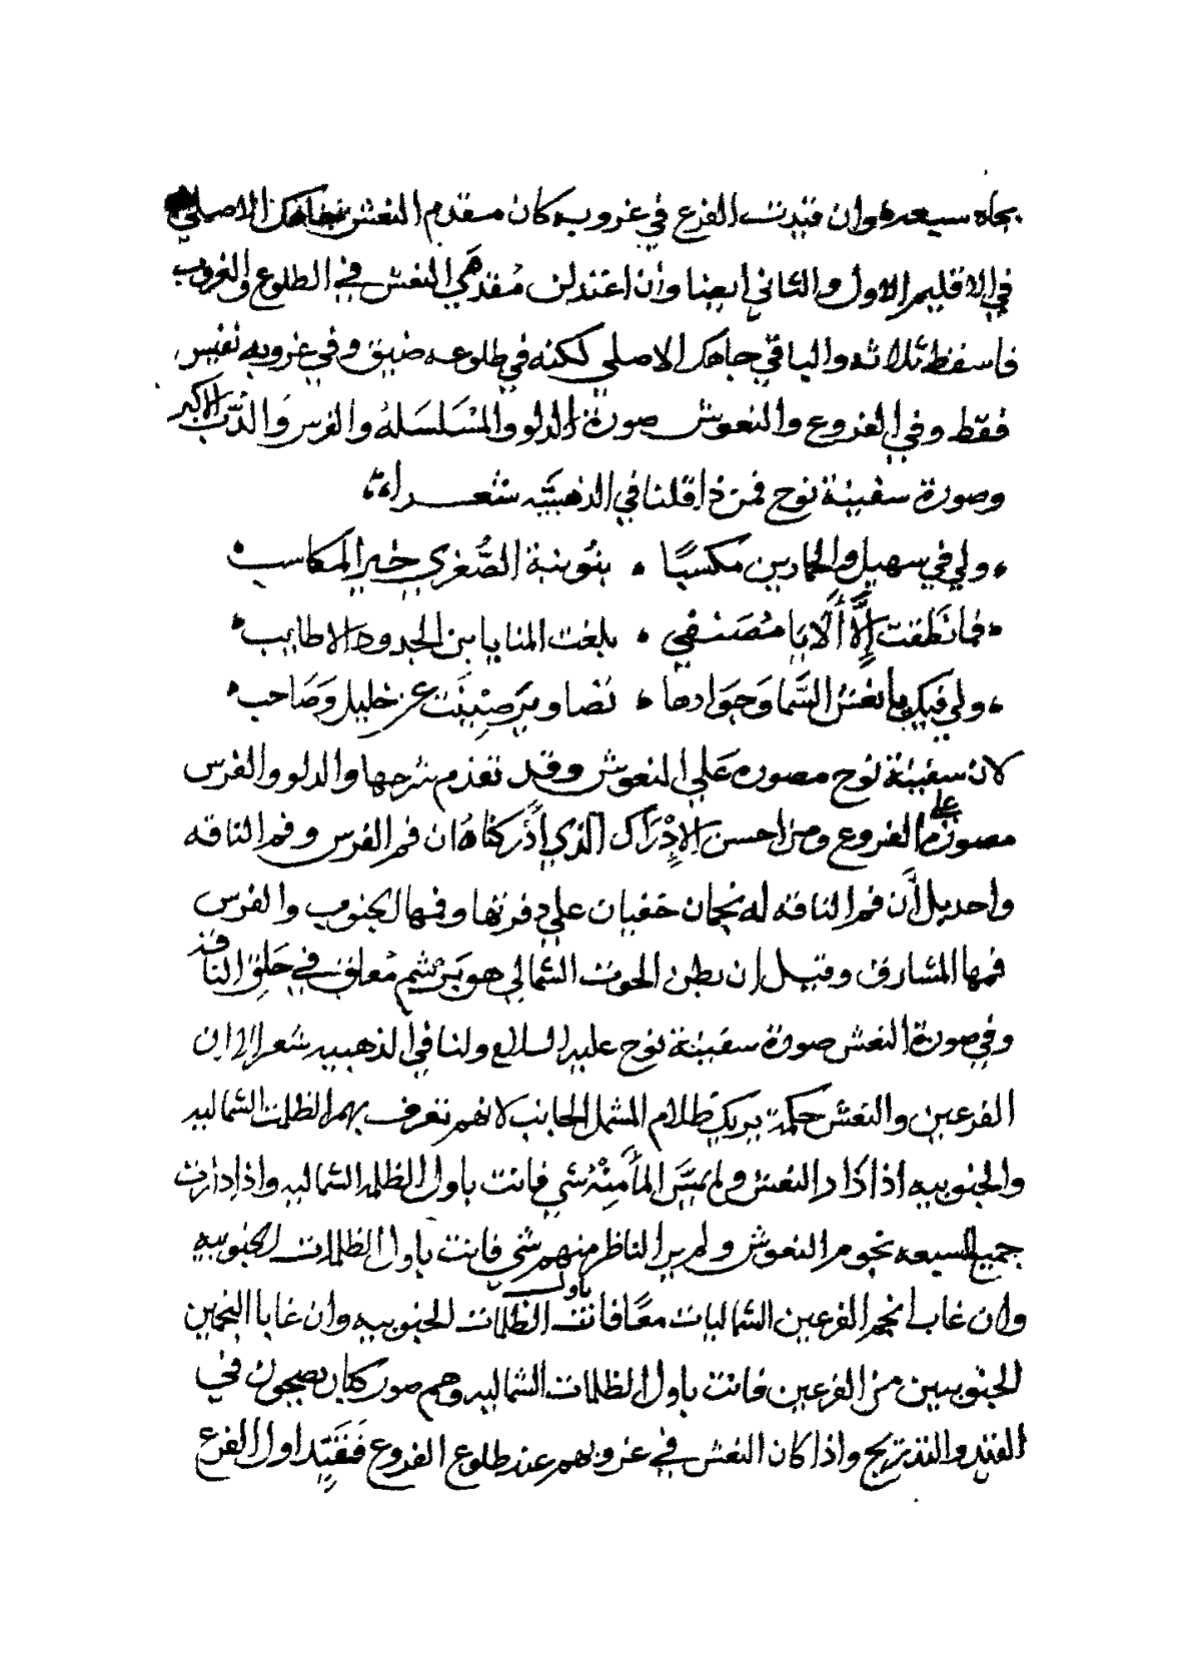 بجاه سبعه وان قيدت الفرع في غروبه كان مقدم النعش بجاهك الاصلي
في الاقليم الاول والثاني ايضا وان اعتدلن مقدمي النعش في الطلوع والغروب
فاسقط ثلاثه والباقي جاهك الاصلي لكنه في طلوعه ضيق وفي غروبه نفيس
فقط وفي الفروع والنعوش صورة الدلو والمسلسله والفرس والدب الاكبر
وصورة سفينة نوح فمن ذا قلنا في الذهبيه شعرا
ولي في سهيل والحمارين مكسبًا بنوبنة الصُّغري خير المكاسب
فما نطقت إلَّا ألَا يا مُصَنفي بلغت المنايا من الجدود الاطايب
ولي فيك يا نعش السَّما وَجَوَادها تصاوير صِيْنَت عن خليل وَصَاحب
لان سفينة نوح مصوره عَلي النعوش وقد تقدم شرحها والدلو والفرس
مصورة علي الفروع ومن احسن الإدْرَاك الذي أدركناهُ ان فم الفرس وفم الناقه
واحد بل أن فم الناقه له نجمان خفيان علي دفرتها وفمها لجنوب والفرس
فمها المشارق وقيل ان بطن الحوت الشمالي هو بَرْشم مُعلق في حَلِق الناقه
وفي صورة النعش صورة سفينة نوح عليه السلام ولنا في الذهبيه شعر الا ان
الفرعين والنعش حكمة يريك ظلام المشمل الجانب لانهم تعرف بهم الظلمت الشماليه
والجنوبيه اذا دَار النعش ولم يمسَّ المأ منْهُ شي فانت باول الظلمه الشماليه واذا دارت
جميع السبعه نجوم النعوش ولم ير الناظر منهم شي فانت باول الظلمات الجنوبيه
وان غاب انجم الفرعين الشماليات معًا فانت باول الظلمات الجنوبيه وان غابا النجمين
الجنوبيين من الفرعين فانت باول الظلمات الشماليه وهم صور كتاب يصحون في
القيد والتدريج واذا كان النعش في غروبهم عند طلوع الفروع فَقَيِّد اول الفرع